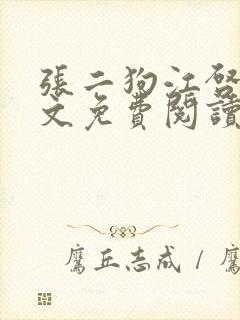 張二狗江啓
文免費閱讀
鷹丘志成 / 鷹